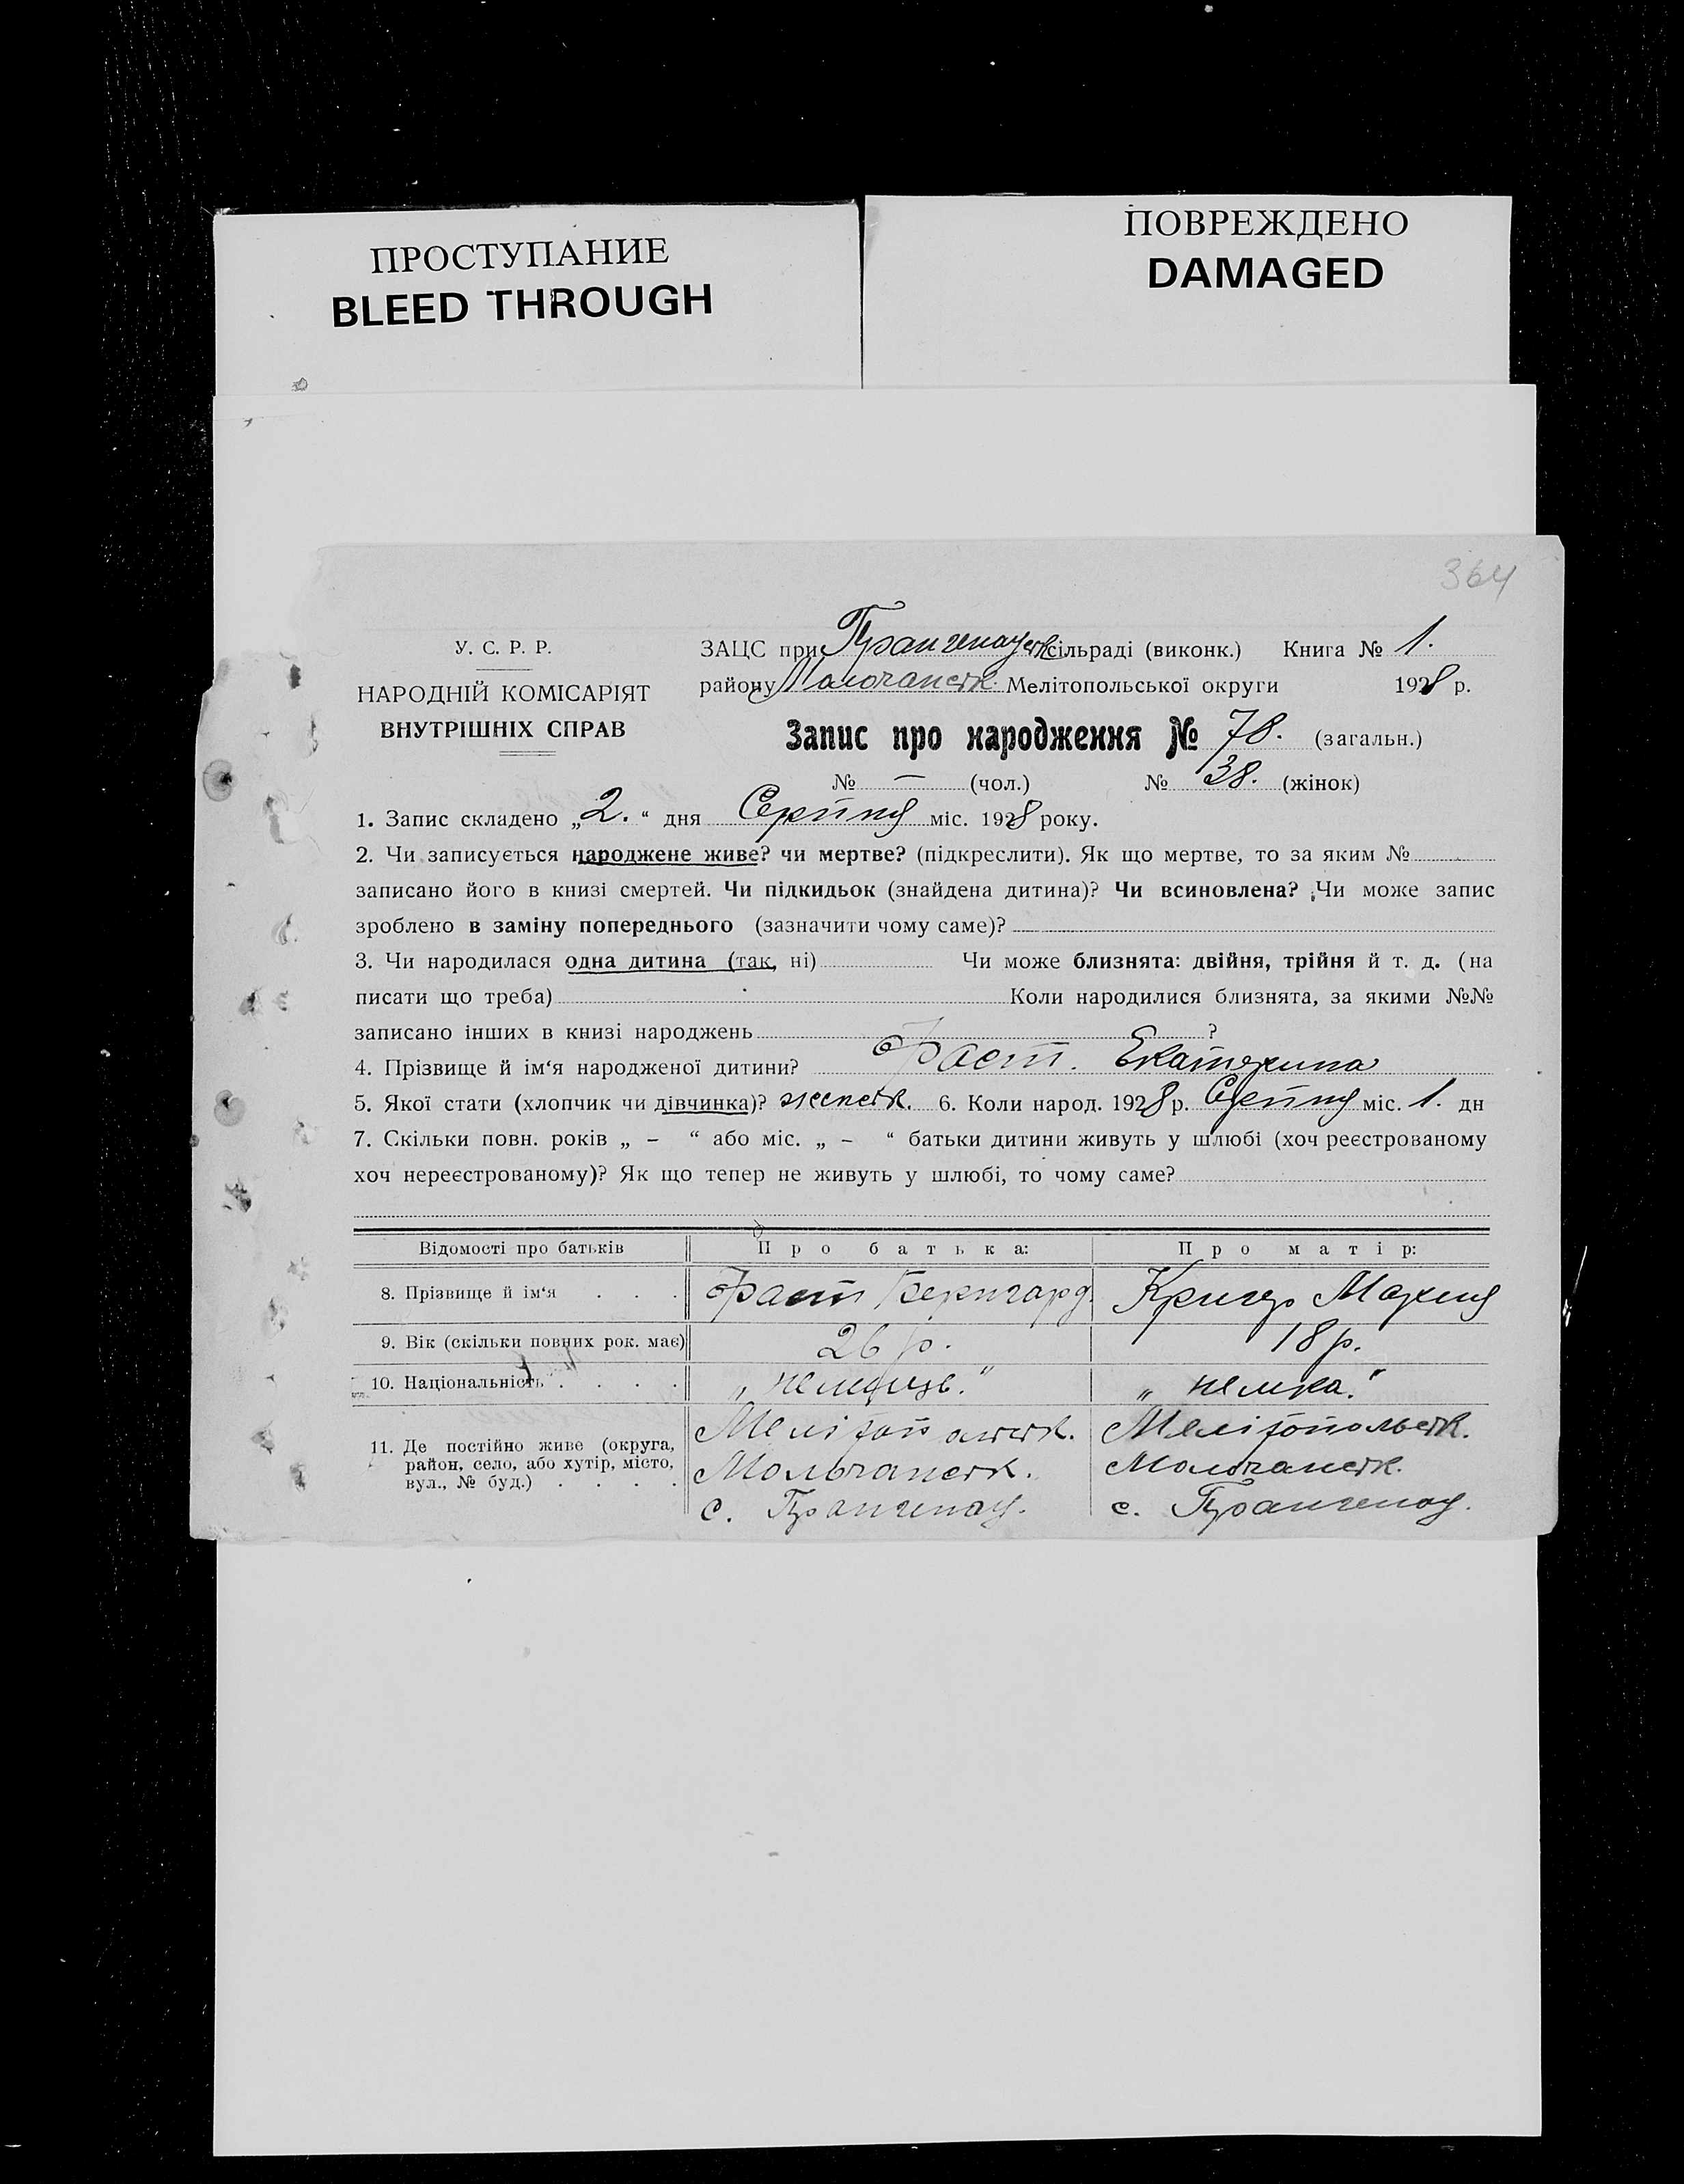 ПРОСТУПАНИЕ
BLEED THROUGH
ПОВРЕЖДЕНО
DAMAGED
364
У. С. Р. Р.
НАРОДНІЙ КОМІСАРІЯТ
ВНУТРІШНІХ СПРАВ
ЗАЦС при Прангенауск сільраді (виконк.) Книга № 1.
району Молочанськ. Мелітопольської округи 1928 р.
Запис про народження № 78. (загальн.)
№ — (чол.) № 38. (жінок)
1. Запис складено „2.“ дня Серпня міс. 1928 року.
2. Чи записується народжене живе? чи мертве? (підкреслити). Як що мертве, то за яким №
записано його в книзі смертей. Чи підкидьок (знайдена дитина)? Чи всиновлена? Чи може запис
зроблено в заміну попереднього (зазначити чому саме)?
3. Чи народилася одна дитина (так, ні) Чи може близнята: двійня, трійня й т. д. (на
писати що треба) Коли народилися близнята, за якими №№
записано інших в книзі народжень ?
4. Прізвище й ім‘я народженої дитини? Фаст. Екатерина
5. Якої стати (хлопчик чи дівчинка)? женск. 6. Коли народ. 1928 р. Серпня міс. 1. дн
7. Скільки повн. років „ – “ або міс. „ – “ батьки дитини живуть у шлюбі (хоч реєстрованому
хоч нереєстрованому)? Як що тепер не живуть у шлюбі, то чому саме?
Відомості про батьків Про батька: Про матір:
8. Прізвище й ім‘я . . . Фаст Бернгард. Кригер Мария
9. Вік (скільки повних рок. має) 26 р. 18 р.
10. Національність . . . . „немець.“ „немка.“
11. Де постійно живе (округа,
район, село, або хутір, місто,
вул., № буд.) . . . .
Мелітопольск.
Молочанск.
с. Прангенау.
Мелітопольск.
Молочанск.
с. Прангенау.